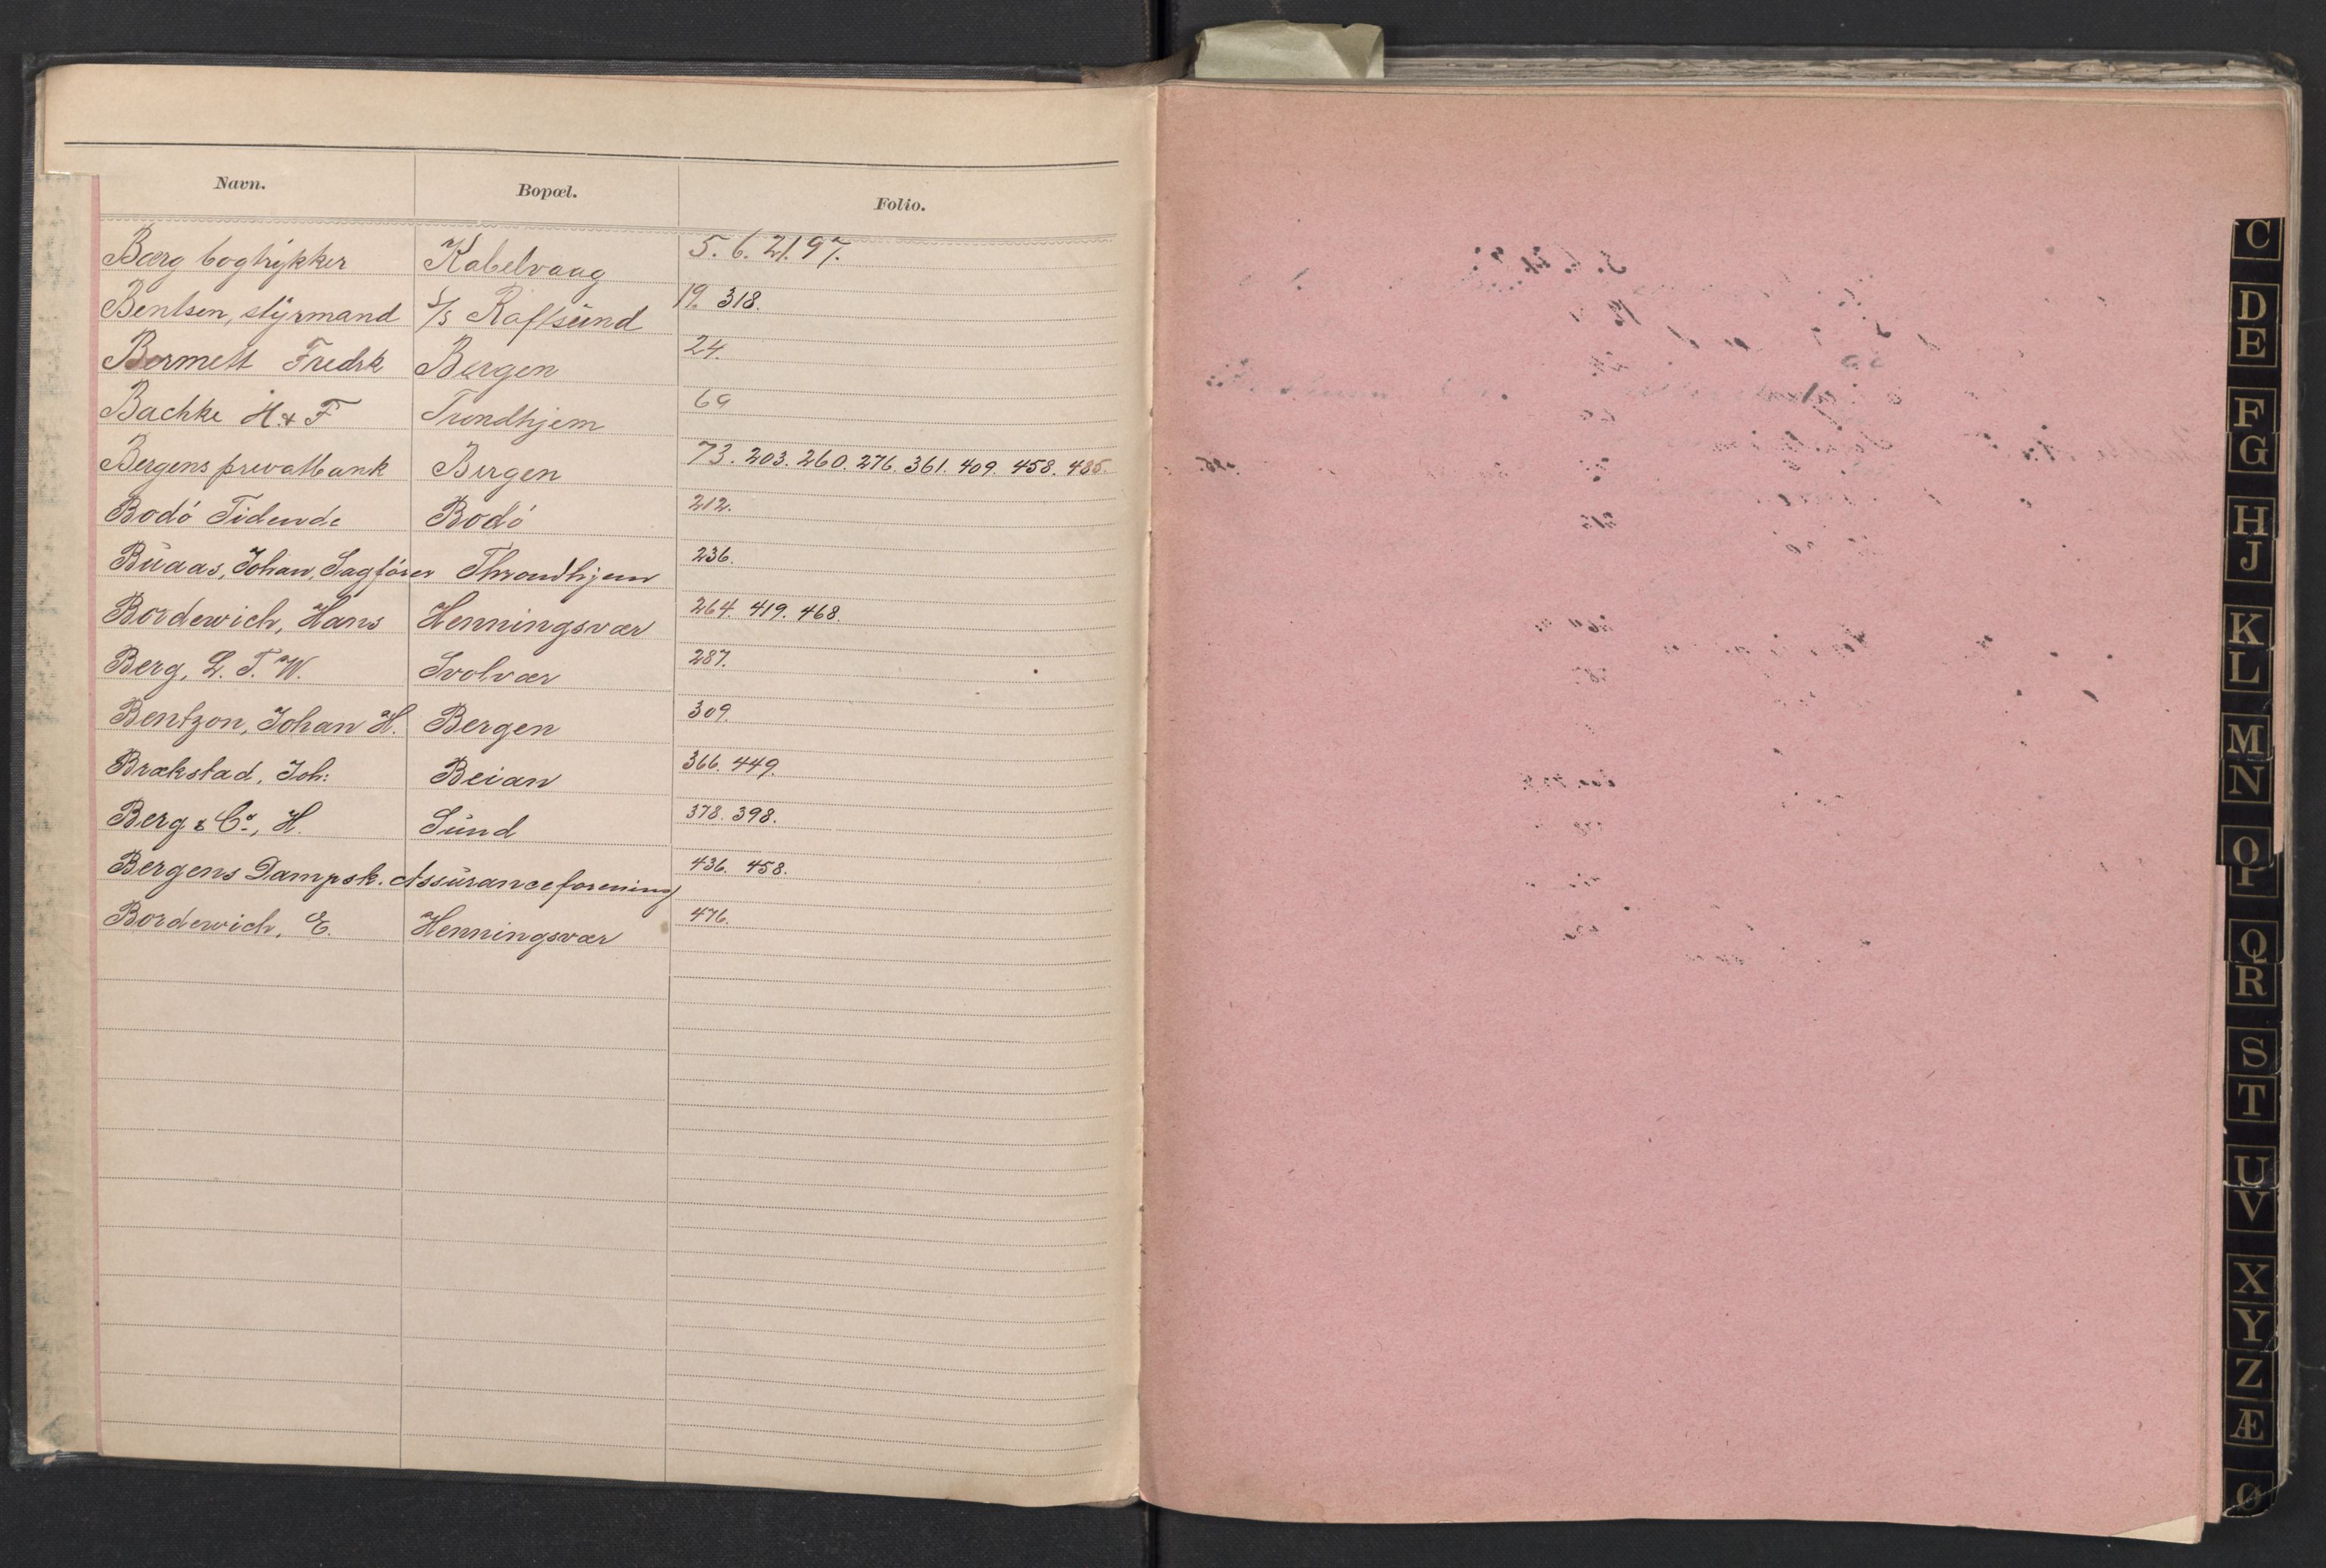 Navn. Bopæl. Folio.
Berg bogtrykker Kabelvaag 5. 6. 21. 97.
Bentsen, styrmand S/S Raftsund 19. 318.
Bermett Fredrk Bergen 24.
Bachke H. & F Trondhjem 69
Bergens privatbank Bergen 73. 203. 260. 276. 361. 409. 458. 485.
Bodó Tidende Bodó 212.
Buaas, Johan, Sagfører Throndhjem 236.
Bordewich, Hans Henningsvær 264. 419. 468.
Berg, L. T. W. Svolvær 287.
Bentzon, Johan H. Bergen 309.
Brækstad, Joh: Beian 366. 449.
Berg & Co., H. Sund 378. 398.
Bergens Dampsk. Assuranceforening 436. 458.
Bordewich, E. Henningsvær 476.
C
D
E
F
G
H
J
K
L
M
N
O
P
Q
R
S
T
U
V
X
Y
Z
Æ
Ø